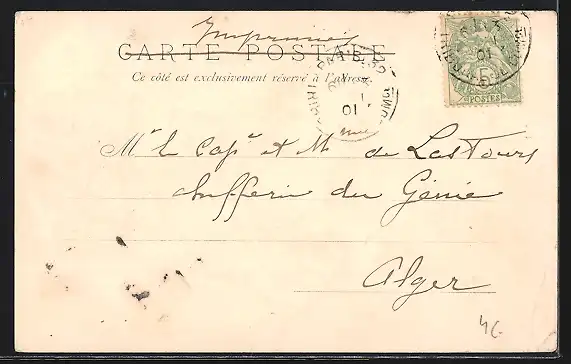 Imprimé
CARTE POSTALE
Ce côté est exclusivement réservé à l'adresse.
01
01
5
POSTES
Mr le Cape et Me de Lastours
chefferie du Génie
Alger
46